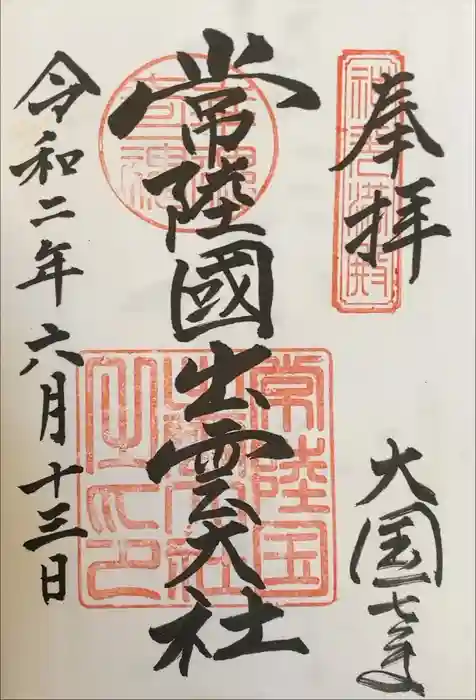 奉拝
大国さま
常陸國出雲大社
令和二年六月十三日
常陸国
出雲大社
之印